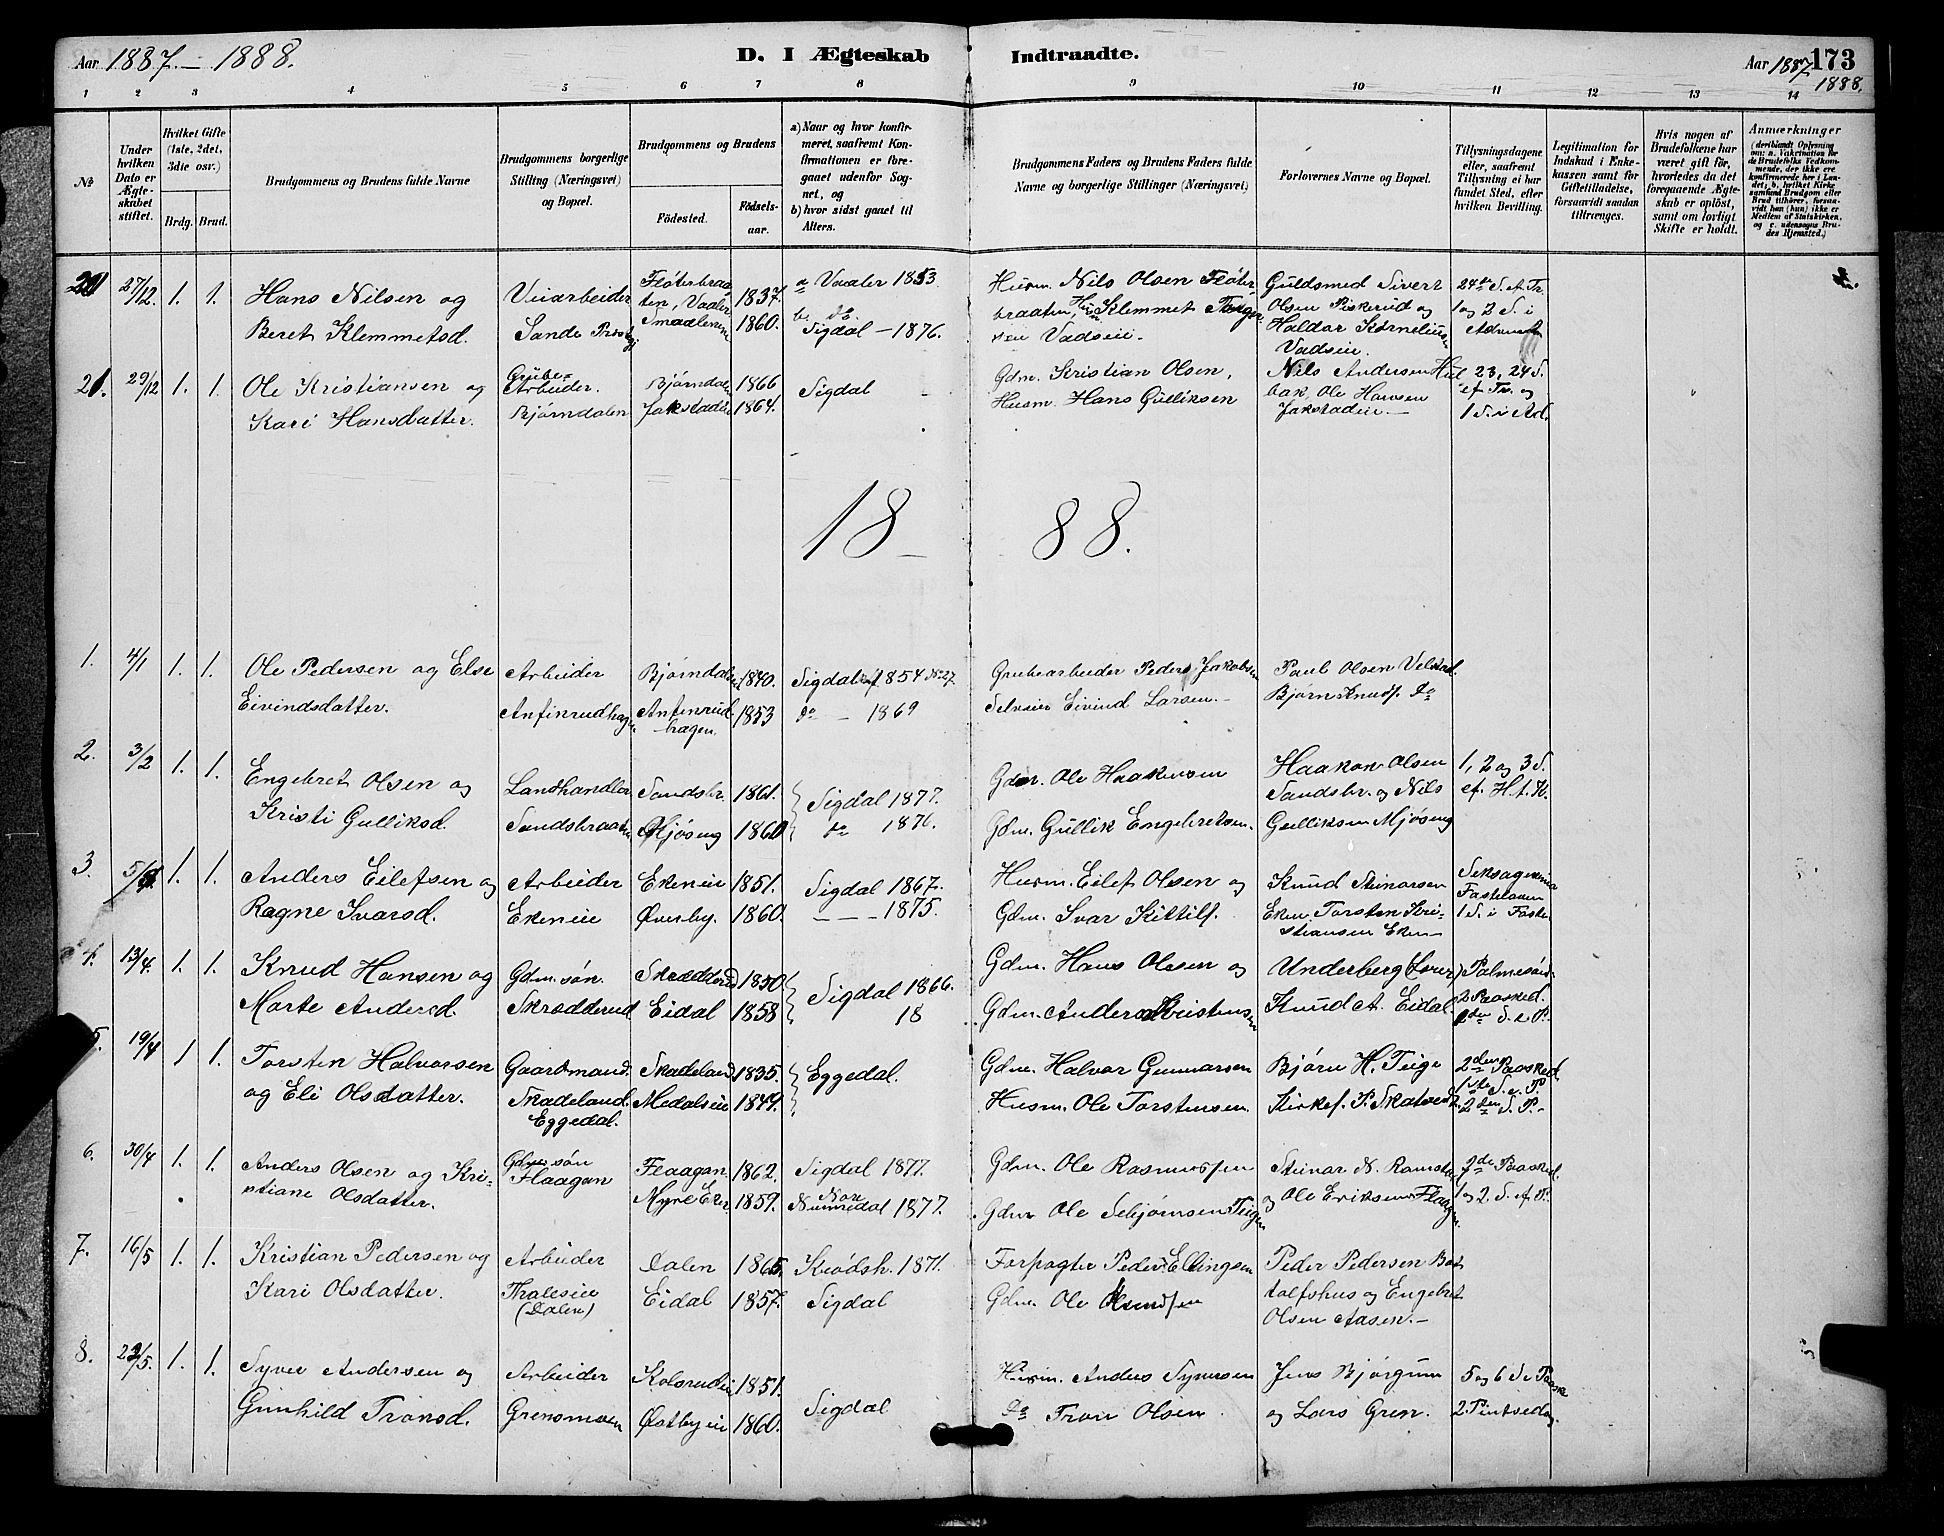 Aar 1887.–1888.
D. I Ægteskab Indtraadte.
Aar 1887 173
1888.
1 2 3 4 5 6 7 8 9 10 11 12 13 14
№
Under hvilken Dato er Ægteskabet stiftet.
Hvilket Gifte (1ste, 2det, 3die osv.)
Brdg. Brud.
Brudgommens og Brudens fulde Navne
Brudgommens borgerlige Stilling (Næringsvei) og Bopæl.
Brudgommens og Brudens
Födested. Födsels-aar.
a) Naar og hvor konfirmeret, saafremt Konfirmationen er foregaaet udenfor Sognet, og
b) hvor sidst gaaet til Alters.
Brudgommens Faders og Brudens Faders fulde Navne og borgerlige Stillinger (Næringsvei)
Forlovernes Navne og Bopæl.
Tillysningsdagene eller, saafremt Tillysning ei har fundet Sted, efter hvilken Bevilling.
Legitimation for Indskud i Enkekassen samt for Giftetilladelse, forsaavidt saadan tiltrænges.
Hvis nogen af Brudefolkene har været gift för, hvorledes da det foregaaende Ægteskab er oplöst, samt om lovligt Skifte er holdt.
Anmærkninger (deriblandt Oplysning om: a. Vakcination for de Brudefolks Vedkommende, der ikke ere konfirmerede her i Landet; b. hvilket Kirkesamfund Brudgom eller Brud tilhörer, forsaavidt han (hun) ikke er Medlem af Statskirken, og c. udensogns Brudes Hjemsted.)
27/12. 1. 1. Hans Nilsen og Beret Klemmetsd.
Veiarbeider Sande Prstgj
Fløterbraaten, Vaaler Smaalenene 1837. 1860.
a Vaaler 1853 b. do Sigdal – 1876.
Husm. Nils Olsen Fløterbraaten, Hus. Klemmet Torgersen Vadseie.
Guldsmed Sivert Olsen Piskerud og Haldor Kornelius Vadseie.
24de S. ef. Tr. 1 og 2 S. i Advent
21. 29/12 1. 1. Ole Kristiansen og Kari Hansdatter.
Grube-Arbeider. Bjørndalen
Bjørndalen 1866
Jakstadeie 1864.
Sigdal
Gdm. Kristian Olsen,
Husm. Hans Gulliksen
Nils Andersen Hulbak, Ole Hansen Jakstadeie.—
23, 24 S. ef Tr. og 1 S. i Ad.
18–88.
1. 4/1 1. 1. Ole Pedersen og Else Eivindsdatter.
Arbeider Anfinrudhagen
Bjørndalen 1840.
Anfinrudhagen. 1853
Sigdal 1854 No 27.
do — 1869
Grubearbeider Peder Jakobsen
Selveier Eivind Larsen.–
Paul Olsen Velstad.
Bjørn Knuds. do
2. 3/2 1. 1. Engebret Olsen og Kristi Gulliksd.
Landhandler Sandsbraaten
Sandsbr. 1861.
Mjøseng 1860
Sigdal 1877.
do 1876.
Gdm. Ole Haakensen
Gdm. Gullik Engebretsen.
Haakon Olsen Sandsbr. og Nils Gulliksen Mjøseng
1, 2 og 3 S. ef. H. t. K.
3. 1. 1. Anders Eilefsen og Ragne Ivarsd.
Arbeider Ekeneie
Ekeneie 1851.
Øvreby. 1860.
Sigdal 1867.
— — – 1875.
Husm. Eilef Olsen og
Gdm. Ivar Kittils.
Knud Steinarsen Eken Torsten Kristiansen Eken–
Seksagesima Fastelaven 1 S. i Faste
4. 13/4. 1. 1. Knud Hansen og Marte Andersd.
Gdm. søn. Skrædderud
Skrædderud 1850
Eidal 1858
Sigdal 1866.
18
Gdm. Hans Olsen og
Gdm. Anders Kristensen
Underberg (Lær)
Knud A. Eidal.
Palmesønd. 2 Paasked. 2den S. e. P.
5. 19/4 1 1. Torsten Halvorsen og Eli Olsdatter.
Gaardmand. Skadeland. Eggedal.
Skadeland 1835.
Medalseie 1844.
Eggedal.
Gdm. Halvor Gunnarsen
Husm. Ole Torstensen.
Bjørn H. Teige
Kirkes. P. Skatvedt.
2den Paasked. 1ste S. e. P. 2den S. P.–
6. 30/4 1. 1. Anders Olsen og Kristiane Olsdatter.
Gdm. søn Flaagan
Flaagan. 1862.
Myre Ekr. 1859.
Sigdal 1877.
Nore Numedal 1877.
Gdm. Ole Rasmussen
Gdm Ole Teigen
Steinar N. Ramstad og Ole Eriksen Flaagan
2de Paasked. 1 og 2. S. ef. P.
7. 16/5 1. 1. Kristian Pedersen og Kari Olsdatter.
Arbeider Thaleseie (Dalen)
Dalen 1865.
Eidal 1857.
Krødsh. 1871.
Sigdal
Forpagter Peder Ellingsen
Gdm. Ole
Peder Pedersen Bottolfshus og Engebret Olsen Aasen.–
8. 22/5. 1. 1. Syver Andersen og Gunhild Tronsd.
Arbeider Grensmoen
Kolsrudeie 1851.
Østbyeie 1860.
Sigdal
Husm. Anders Syversen
do Tron Olsen.
Jens Bjørgum og Lars Gren.
5 og 6 S. e Paaske 2. Pintsedag.